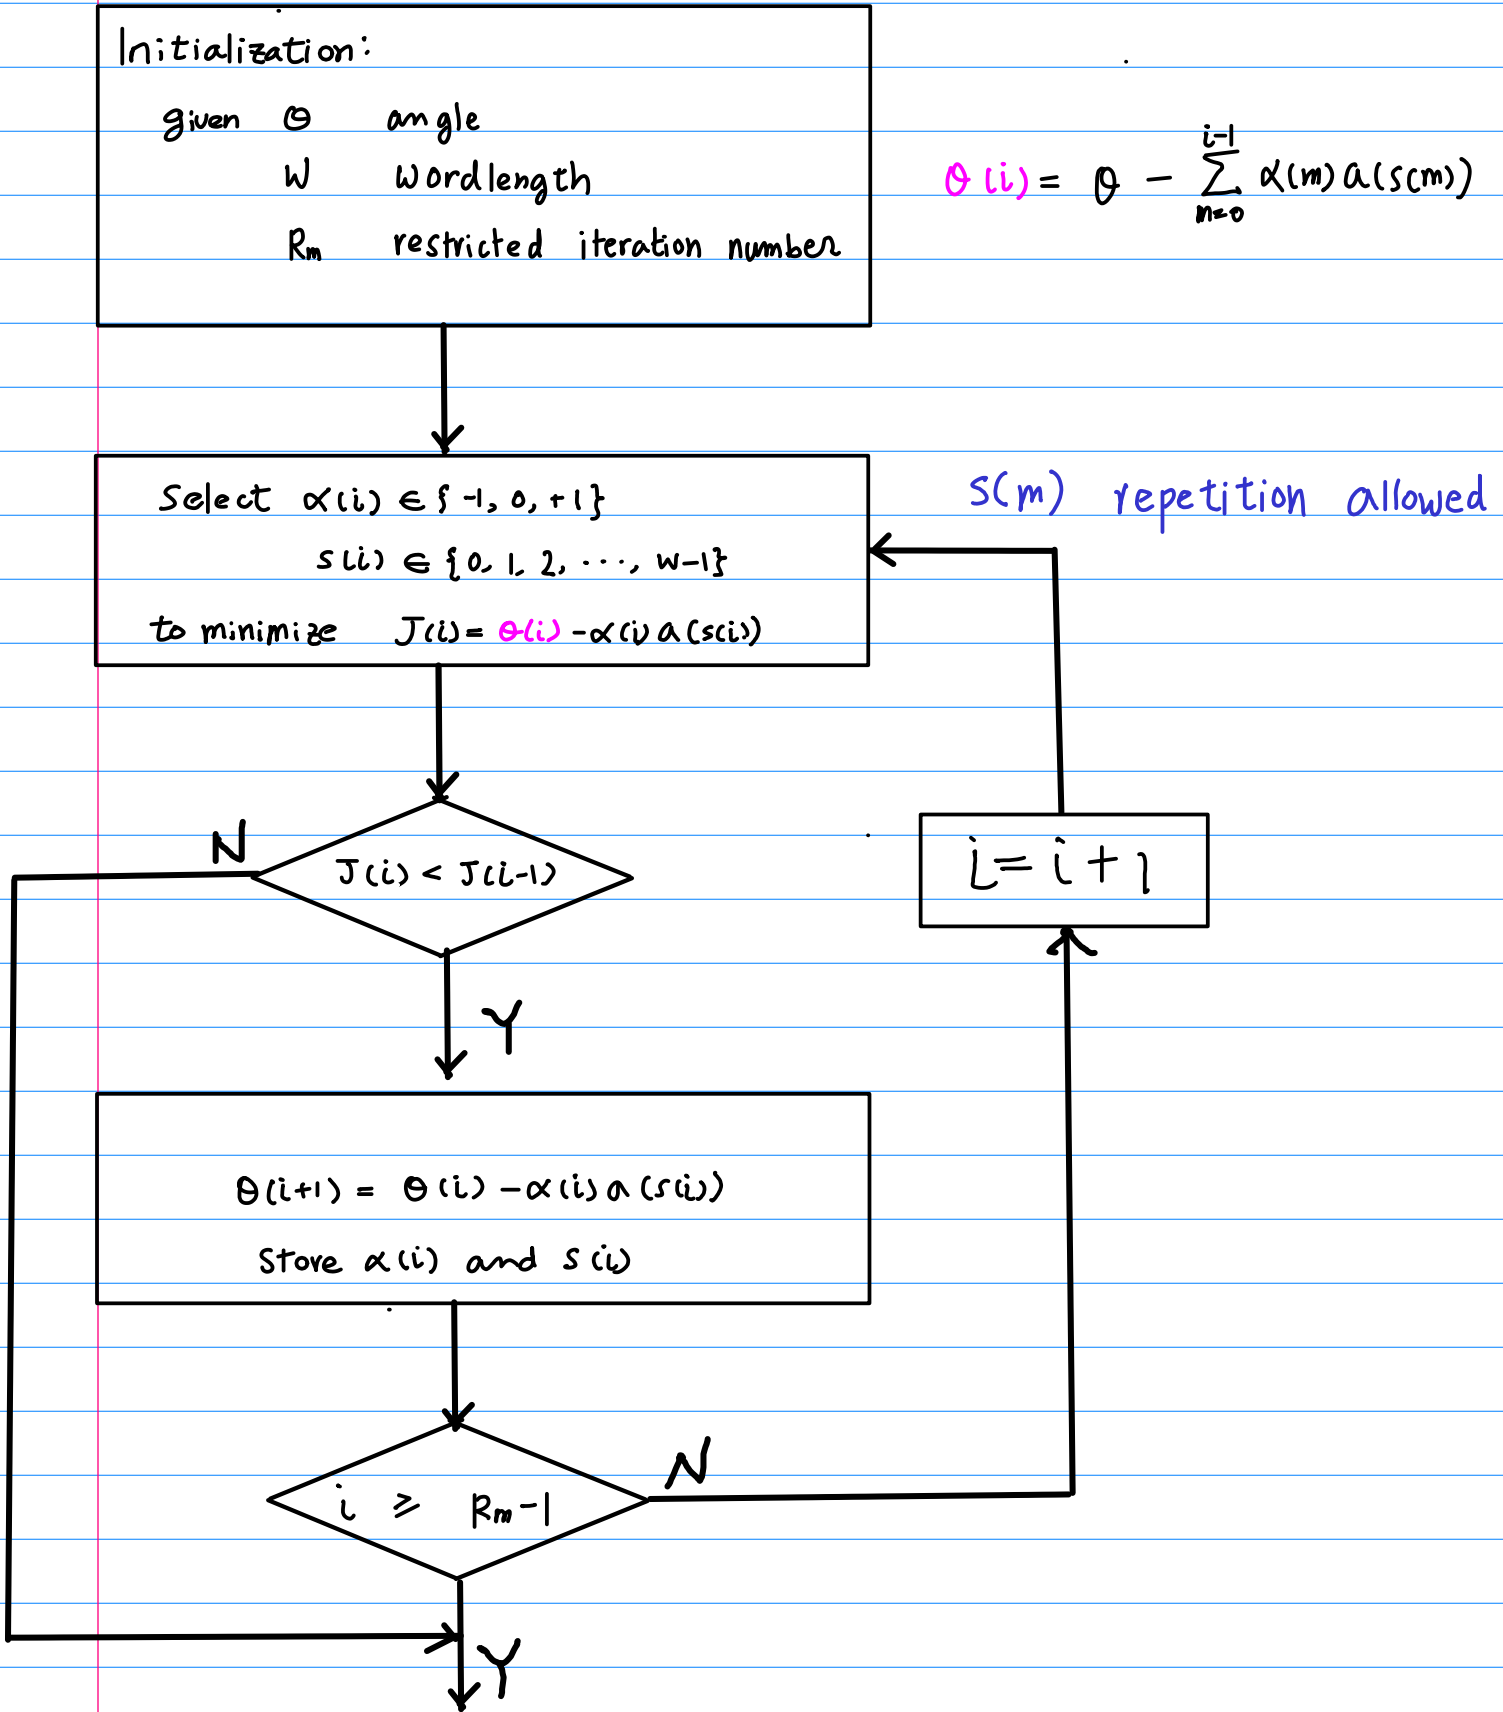 Initialization:
given θ angle
W wordlength
Rm restricted iteration number
θ(i) = θ - Σ_{m=0}^{i-1} α(m) a(s(m))
Select α(i) ∈ { -1, 0, +1}
s(i) ∈ {0, 1, 2, ..., w-1}
to minimize J(i) = θ(i) - α(i) a(s(i))
S(m) repetition allowed
N
J(i) < J(i-1)
i = i + 1
Y
θ(i+1) = θ(i) - α(i) a(s(i))
Store α(i) and s(i)
N
i ⩾ Rm-1
Y